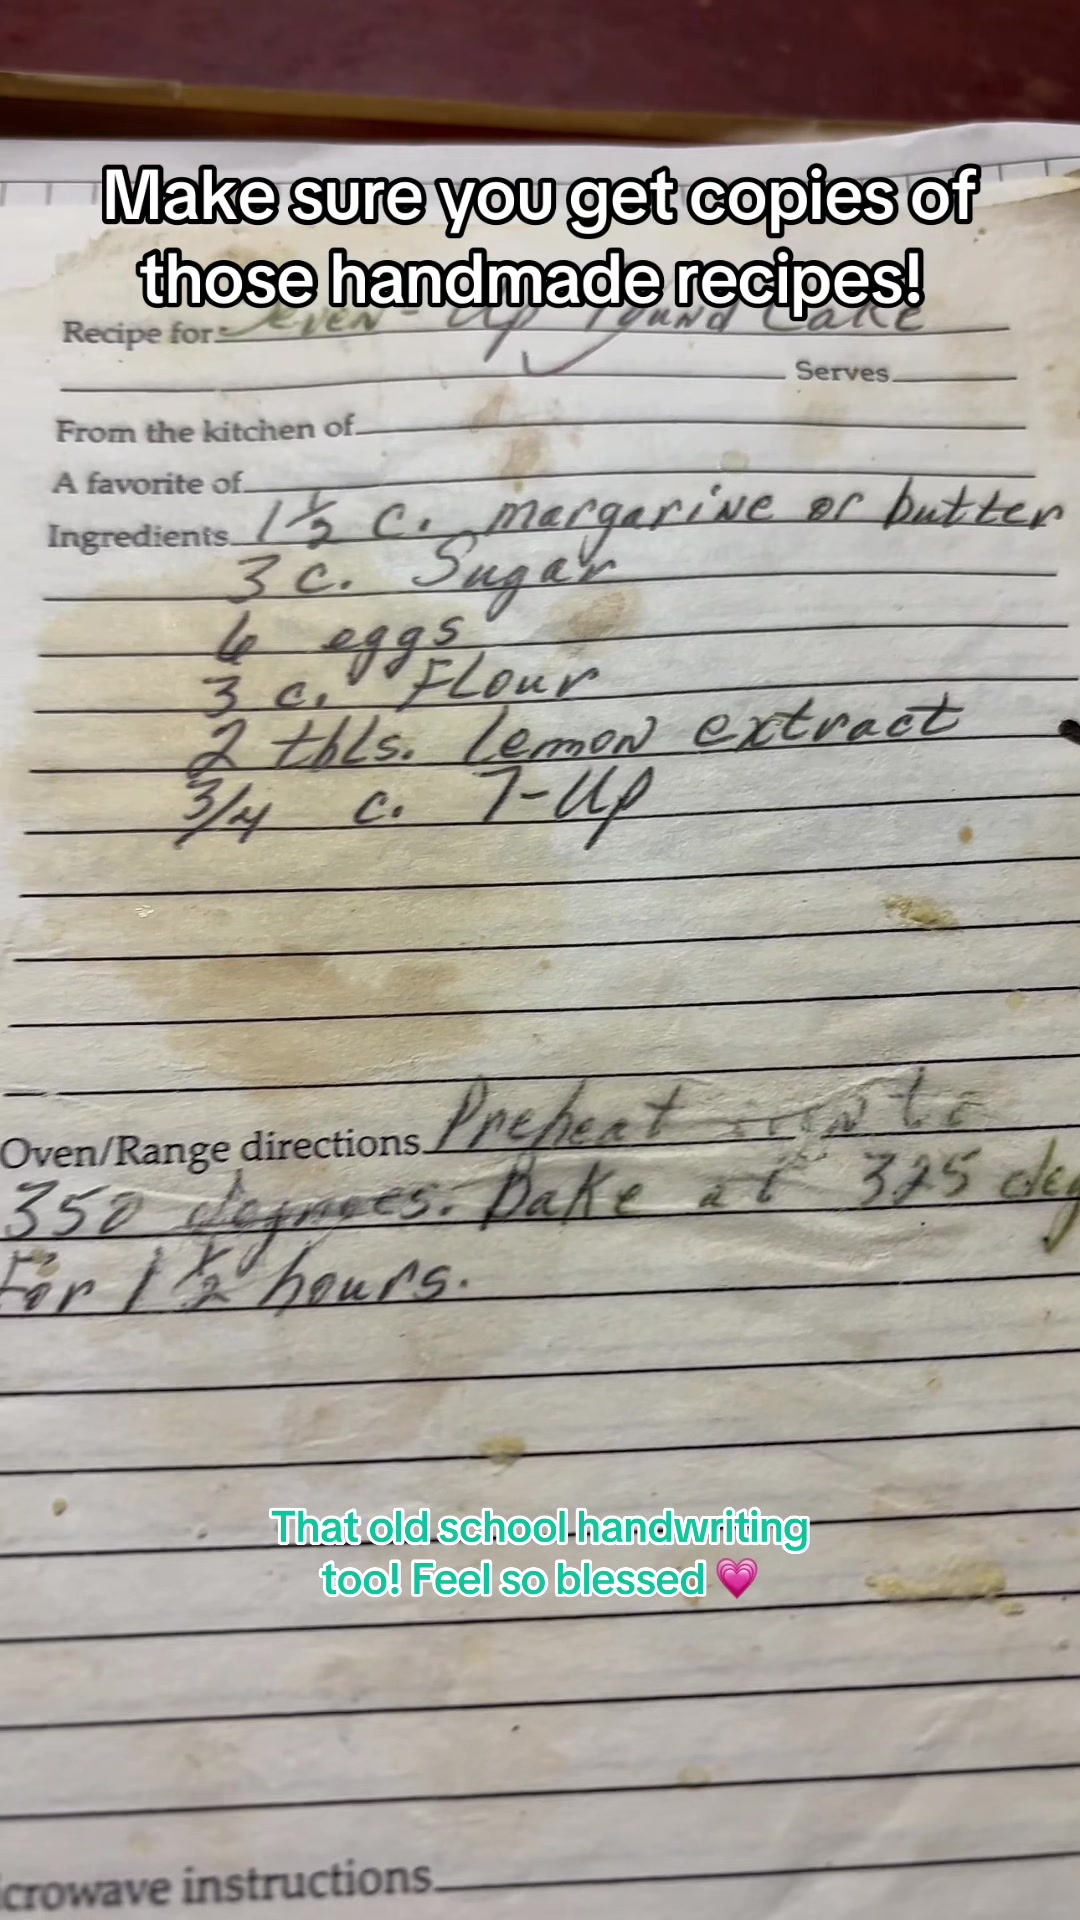 Make sure you get copies of
those handmade recipes!
Recipe for Seven-Up Pound Cake
Serves
From the kitchen of
A favorite of
Ingredients 1 1/2 c. margarine or butter
3 c. Sugar
6 eggs
3 c. Flour
2 tbls. Lemon extract
3/4 c. 7-Up
Oven/Range directions Preheat to
350 degrees. Bake at 325 deg
For 1 1/2 hours.
That old school handwriting
too! Feel so blessed 💗
crowave instructions